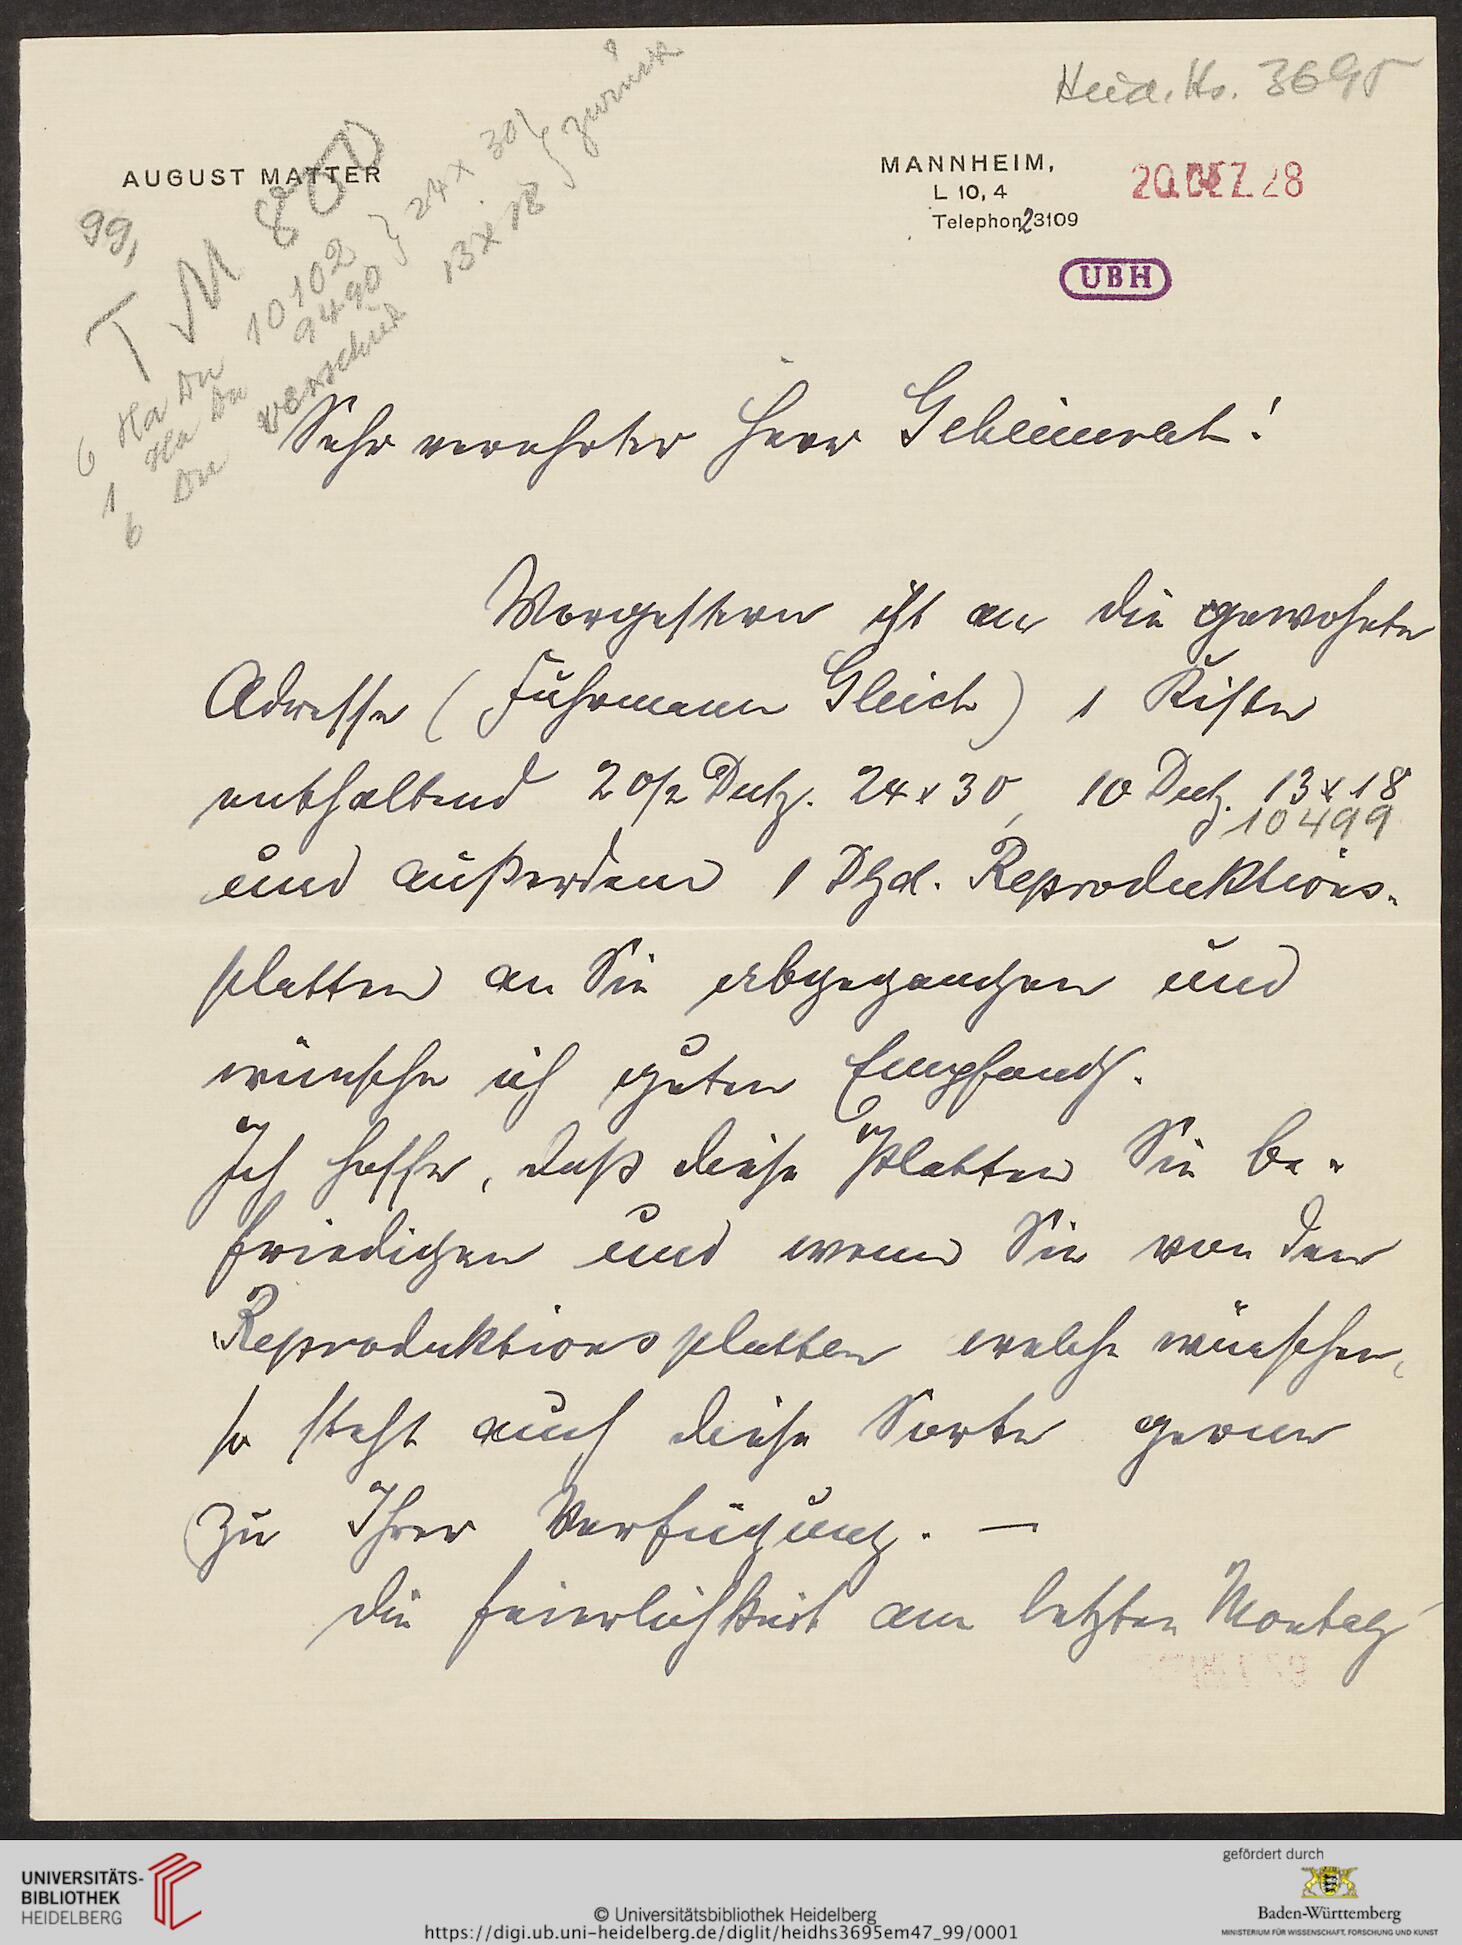 Heid. Hs. 3695
AUGUST MATTER
MANNHEIM,
L 10, 4
Telephon 23109
20. DEZ. 28
UBH
99,
TM 800
6 Ha Du 10102 } 24 x 30
1 Ha Du 9490
6 Du verschied 13 x 18 } zurück
Sehr verehrter Herr Geheimrat!
Vorgestern ist an die gewohnte
Adresse (Fuhrmann Gleich) 1 Kiste
enthaltend 20/2 Dutz. 24 x 30, 10 Dutz. 13 x 18
10499
und außerdem 1 Dtzd. Reproduktions-
platten an Sie abgegangen und
wünsche ich guten Empfang.
Ich hoffe, daß diese Platten Sie be-
friedigen und wenn Sie von den
Reproduktionsplatten welche wünschen,
so steht auch diese Sorte gerne
zu Ihrer Verfügung. —
Die Feierlichkeit am letzten Montag
UNIVERSITÄTS-
BIBLIOTHEK
HEIDELBERG
© Universitätsbibliothek Heidelberg
https://digi.ub.uni-heidelberg.de/diglit/heidhs3695em47_99/0001
gefördert durch
Baden-Württemberg
MINISTERIUM FÜR WISSENSCHAFT, FORSCHUNG UND KUNST